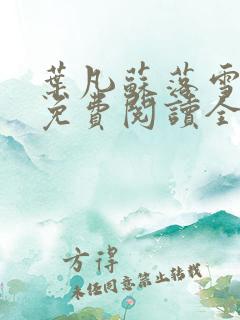 葉凡蘇落雪
免費閱讀全
方得
未經同意禁止轉載